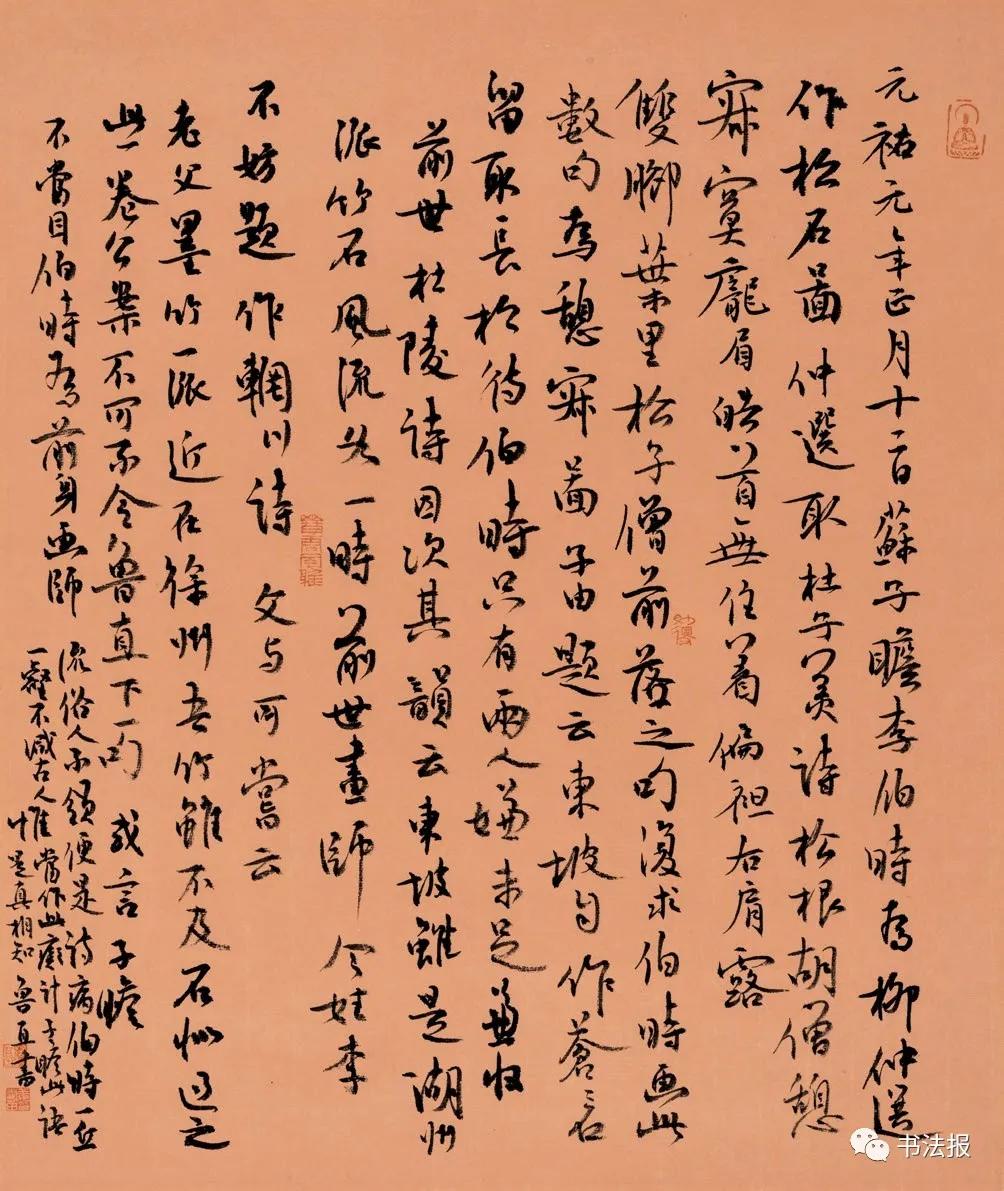 元祐元年正月十二日蘇子瞻李伯時為柳仲遠
作松石圖仲遠取杜子美詩松根胡僧憩
寂寞龐眉皓首無住著偏袒右肩露
雙腳葉里松子僧前落之句復求伯時画此
數句為憩寂圖子由題云東坡自作蒼蒼石
留取長松待伯時只有兩人嫌未足兼收
前世杜陵詩因次其韻云東坡雖是湖州
派竹石風流各一時前世畫師今姓李
不妨題作輞川詩 文与可嘗云
老夫墨竹一派近在徐州吾竹雖不及石似過之
此一卷公案不可不令魯直下一句 或言子瞻
不當目伯時為前身画師
流俗人不領便是詩病伯時一丘
一壑不減古人誰當作此癡計子瞻此語
惟是真相知魯直書
书法报